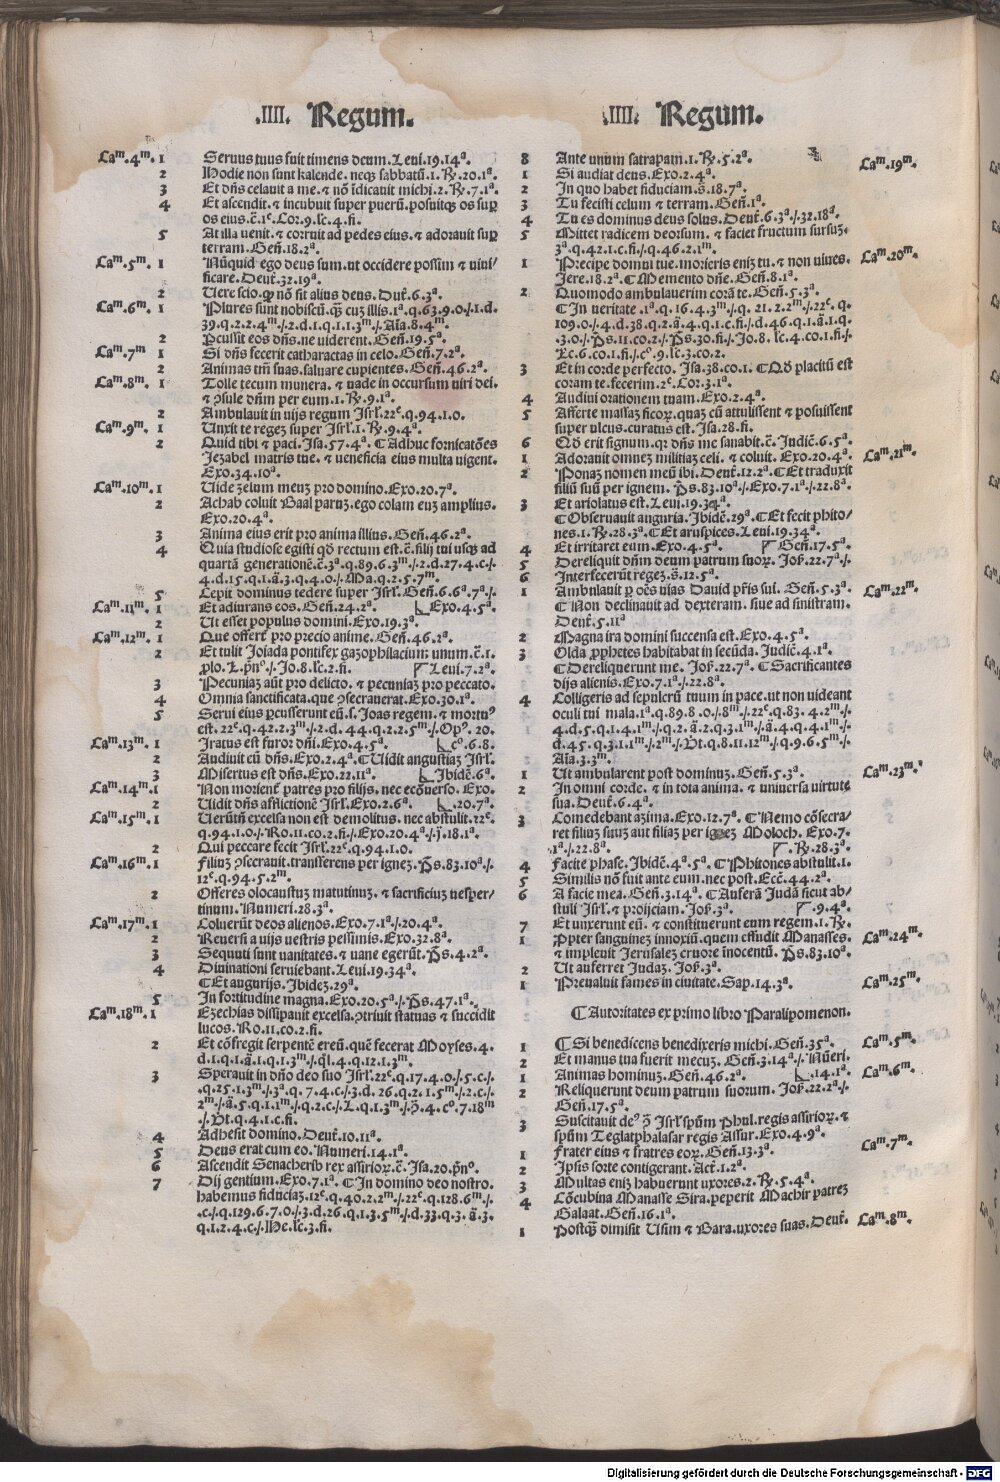 .IIII. Regum.
Caᵐ.4ᵐ. 1 Seruus tuus fuit timens deum. Leui.19.14ᵃ.
2 Hodie non sunt kalende. neqȝ sabbatū.1. Rꝫ.20.1ᵃ.
3 Et dñs celauit a me. ⁊ nō īdicauit michi.2. Rꝫ.7.1ᵃ.
4 Et ascendit. ⁊ incubuit super puerū. posuitqȝ os suꝑ
os eius. c̄.1ᶜ. Cor.9. lc̄.4. fi.
5 At illa uenit. ⁊ corruit ad pedes eius. ⁊ adorauit suꝑ
terram. Geñ.18.2ᵃ.
Caᵐ.5ᵐ. 1 Nūquid ego deus sum. ut occidere possim ⁊ uiui/
ficare. Deut̄.32.19ᵃ.
2 Uere scio. ꝙ nō sit alius deus. Dut̄.6.3ᵃ.
Caᵐ.6ᵐ. 1 Plures sunt nobiscū. qȝ̄ cuȝ illis.1ᵃ.q.63.9.0./.1.d.
39.q.2.2.4ᵐ./.2.d.1.q.1.1.3ᵐ./. Aīa.8.4ᵐ.
2 Ꝑcussit eos dñs. ne uiderent. Geñ.19.5ᵃ.
Caᵐ.7ᵐ 1 Si dñs fecerit catharactas in celo. Geñ.7.2ᵃ.
2 Animas tm̄ suas. saluare cupientes. Geñ.46.2ᵃ.
Caᵐ.8ᵐ. 1 Tolle tecum munera. ⁊ uade in occursum uiri dei.
⁊ ꝯsule dñm per eum.1. Rꝫ.9.1ᵃ.
2 Ambulauit in uijs regum Isrl̄.22ᶜ.q.94.1.0.
Caᵐ.9ᵐ. 1 Unxit te regeȝ super Isrl̄.1. Rꝫ.9.4ᵃ.
2 Quid tibi ⁊ paci. Isa.57.4ᵃ. ⸿Adhuc fornicatōes
Iezabel matris tue. ⁊ ueneficia eius multa uigent.
Exo.34.10ᵃ.
Caᵐ.10ᵐ. 1 Uide zelum meuȝ pro domino. Exo.20.7ᵃ.
2 Achab coluit Baal paruȝ. ego colam euȝ amplius.
Exo.20.4ᵃ.
3 Anima eius erit pro anima illius. Geñ.46.2ᵃ.
4 Quia studiose egisti qd̄ rectum est. c̄. filij tui usqȝ ad
quartā generationē. c̄.3ᵃ.q.89.6.3ᵐ./.2.d.27.4.c./.
4.d.15.q.1.ā.3.q.4.0./. Ma.q.2.5.7ᵐ.
5 Cepit dominus tedere super Isrl̄. Geñ.6.6ᵃ.7ᵃ./.
Caᵐ.11ᵐ. 1 Et adiurans eos. Geñ.24.2ᵃ. Exo.4.5ᵃ.
2 Ut esset populus domini. Exo.19.3ᵃ.
Caᵐ.12ᵐ. 1 Que offert̄ pro precio anime. Geñ.46.2ᵃ.
2 Et tulit Ioiada pontifex gazophilacium unum. c̄.1.
ꝑlo. L. pr̄iᵒ./. Io.8. lc̄.2. fi. Leui.7.2ᵃ.
3 Pecuniaȝ aūt pro delicto. ⁊ pecuniaȝ pro peccato.
4 Omnia sanctificata. que ꝯsecrauerat. Exo.30.1ᵃ.
5 Serui eius ꝑcusserunt eū. s. Ioas regem. ⁊ mortuꝰ
est.22ᶜ.q.42.2.3ᵐ./.2.d.44.q.2.2.5ᵐ./. Opꝰ.20.
Caᵐ.13ᵐ. 1 Iratus est furor dn̄i. Exo.4.5ᵃ. cᵒ.6.8.
2 Audiuit cū dñs. Exo.2.4ᵃ. ⸿Uidit angustiaȝ Isrl̄.
3 Misertus est dñs. Exo.22.11ᵃ. Ibidē.6ᵃ.
Caᵐ.14ᵐ. 1 Non morient̄ patres pro filijs. nec ecōuerso. Exo.
2 Uidit dñs afflictionē Isrl̄. Exo.2.6ᵃ. .20.7ᵃ.
Caᵐ.15ᵐ. 1 Uerūtn̄ excelsa non est demolitus. nec abstulit.22ᶜ.
q.94.1.0./. Ro.11.co.2.fi./. Exo.20.4ᵃ./.j.18.1ᵃ.
2 Qui peccare fecit Isrl̄.22ᶜ.q.94.1.0.
Caᵐ.16ᵐ. 1 Filiuȝ ꝯsecrauit. transferens per igneȝ. P̄s.83.10ᵃ./.
12ᶜ.q.94.5.2ᵐ.
2 Offeres olocaustuȝ matutinuȝ. ⁊ sacrificiuȝ uesper/
tinum. Numeri.28.3ᵃ.
Caᵐ.17ᵐ. 1 Coluerūt deos alienos. Exo.7.1ᵃ./.20.4ᵃ.
2 Reuersi a uijs uestris pessimis. Exo.32.8ᵃ.
3 Sequuti sunt uanitates. ⁊ uane egerūt. P̄s.4.2ᵃ.
4 Diuinationi seruiebant. Leui.19.34ᵃ.
⸿Et augurijs. Ibideȝ.29ᵃ.
5 In fortitudine magna. Exo.20.5ᵃ./. P̄s.47.1ᵃ.
Caᵐ.18ᵐ. 1 Ezechias dissipauit excelsa. ꝯtriuit statuas ⁊ succidit
lucos. Ro.11.co.2.fi.
2 Et cōfregit serpentē ereū. quē fecerat Moyses.4.
d.1.q.1.ā.1.q.1.3ᵐ./.ql̄.4.q.12.1.3ᵐ.
3 Sperauit in dn̄o deo suo Isrl̄.22ᶜ.q.17.4.0./.5.c./.
.q.25.1.3ᵐ./.3ᵃ.q.7.4.c./.3.d.26.q.2.1.5ᵐ./.2.c./.
2ᵐ./.ā.5.q.1.1ᵐ./.q.2.c./. L.q.1.3ᵐ./.p̄.4.cᵒ.7.18ᵐ
./. Ut.q.4.1.c.fi.
4 Adhesit domino. Deut̄.10.11ᵃ.
5 Deus erat cum eo. Numeri.14.1ᵃ.
6 Ascendit Senacherib rex assirioꝝ. c̄. Isa.20.pn̄ᵒ.
7 Dij gentium. Exo.7.1ᵃ. ⸿In domino deo nostro.
habemus fiduciaȝ.12ᶜ.q.40.2.2ᵐ./.22ᶜ.q.128.6ᵐ./.
.c./.q.129.6.7.0./.3.d.26.q.1.3.5ᵐ./.d.33.q.3.ā.3.
q.1.2.4.c./. He.lc̄.3.fi.
.IIII. Regum.
8 Ante unum satrapam.1. Rꝫ.5.2ᵃ. Caᵐ.19ᵐ.
1 Si audiat deus. Exo.2.4ᵃ.
2 In quo habet fiduciam. s̄.18.7ᵃ.
3 Tu fecisti celum ⁊ terram. Geñ.1ᵃ.
4 Tu es dominus deus solus. Deut̄.6.3ᵃ./.32.18ᵃ.
5 Mittet radicem deorsum. ⁊ faciet fructum sursuȝ.
3ᵃ.q.42.1.c.fi./.q.46.2.1ᵐ.
1 Precipe domui tue. morieris eniȝ tu. ⁊ non uiues. Caᵐ.20ᵐ.
Iere.18.2ᵃ. ⸿Memento dn̄e. Geñ.8.1ᵃ.
2 Quomodo ambulauerim corā te. Geñ.5.3ᵃ.
⸿In ueritate.1ᵃ.q.16.4.3ᵐ./.q.21.2.2ᵐ./.22ᶜ.q.
109.0./.4.d.38.q.2.ā.4.q.1.c.fi./.d.46.q.1.ā.1.q.
.3.0./. P̄s.11.co.2./. P̄s.30.fi./. Io.8.lc̄.4.co.1.fi./.
Lc.6.co.1.fi./.cᵒ.9.lc̄.3.co.2.
3 Et in corde perfecto. Isa.38.co.1. ⸿Qd̄ placitū est
coram te. fecerim.2ᶜ. Cor.3.1ᵃ.
4 Audiui orationem tuam. Exo.2.4ᵃ.
5 Afferte massaȝ ficoꝝ. quaȝ cū attulissent ⁊ posuissent
super ulcus. curatus est. Isa.28.fi.
6 Qd̄ erit signum. qꝛ dñs me sanabit. c̄. Iudic̄.6.5ᵃ.
1 Adorauit omneȝ militiaȝ celi. ⁊ coluit. Exo.20.4ᵃ. Caᵐ.21ᵐ.
2 Ponaȝ nomen meū ibi. Deut̄.12.2ᵃ. ⸿Et traduxit
filiū suū per ignem. P̄s.83.10ᵃ./. Exo.7.1ᵃ./.22.8ᵃ.
3 Et ariolatus est. Leui.19.34ᵃ.
⸿Obseruauit auguria. Ibidē.29ᵃ. ⸿Et fecit phito/
nes.1. Rꝫ.28.3ᵃ. ⸿Et aruspices. Leui.19.34ᵃ.
4 Et irritaret eum. Exo.4.5ᵃ. Geñ.17.5ᵃ.
5 Dereliquit dñm deum patrum suoꝝ. Iob̄.22.7ᵃ./.
6 Interfecerūt regeȝ. s̄.12.5ᵃ.
1 Ambulauit ꝑ oēs uias Dauid pr̄is sui. Geñ.5.3ᵃ. Caᵐ.22ᵐ.
⸿Non declinauit ad dexteram. siue ad sinistram.
Deut̄.5.11ᵃ
2 Magna ira domini succensa est. Exo.4.5ᵃ.
3 Olda ꝓphetes habitabat in secūda. Iudic̄.4.1ᵃ.
⸿Dereliquerunt me. Iob̄.22.7ᵃ. ⸿Sacrificantes
dijs alienis. Exo.7.1ᵃ./.22.8ᵃ.
4 Colligeris ad sepulcrū tuum in pace. ut non uideant
oculi tui mala.1ᵃ.q.89.8.0./.8ᵐ./.22ᶜ.q.83.4.2ᵐ./.
4.d.5.q.1.4.1ᵐ./.q.2.ā.2.q.3.1ᵐ./.ā.4.q.4.1ᵐ./.
d.45.q.3.1.1ᵐ./.2ᵐ./. Ut.q.8.11.12ᵐ./.q.9.6.5ᵐ./.
Aīa.3.3ᵐ.
1 Ut ambularent post dominuȝ. Geñ.5.3ᵃ. Caᵐ.23ᵐ.
2 In omni corde. ⁊ in tota anima. ⁊ uniuersa uirtute
sua. Deut̄.6.4ᵃ.
3 Comedebant azima. Exo.12.7ᵃ. ⸿Nemo cōsecra/
ret filiuȝ suuȝ aut filiaȝ per igneȝ Moloch. Exo.7.
.1ᵃ./.22.8ᵃ. . Rꝫ.28.3ᵃ.
4 Facite phase. Ibidē.4ᵃ.5ᵃ. ⸿Phitones abstulit.1.
5 Similis nō fuit ante eum. nec post. Ecc̄.44.2ᵃ.
6 A facie mea. Geñ.3.14ᵃ. ⸿Auferā Iudā sicut ab/
stuli Isrl̄. ⁊ proijciam. Iob̄.3ᵃ. .9.4ᵃ.
7 Et unxerunt eū. ⁊ constituerunt eum regem.1. Rꝫ.
1 Ꝓpter sanguineȝ innoxiū. quem effudit Manasses. Caᵐ.24ᵐ.
⁊ impleuit Ierusaleȝ cruore īnocentū. P̄s.83.10ᵃ.
2 Ut auferret Iudaȝ. Iob̄.3ᵃ.
1 Preualuit fames in ciuitate. Sap.14.3ᵃ. Caᵐ.25ᵐ.
⸿Autoritates ex primo libro Paralipomenon.
1 ⸿Si benedicens benedixeris michi. Geñ.35ᵃ. Caᵐ.5ᵐ.
2 Et manus tua fuerit mecuȝ. Geñ.3.14ᵃ./. Nūeri.
1 Animas hominuȝ. Geñ.46.2ᵃ. .14.1ᵃ. Caᵐ.6ᵐ.
2 Reliquerunt deum patrum suorum. Iob̄.22.2ᵃ./.
Geñ.17.5ᵃ.
3 Suscitauit deꝰ p̄ Isrl̄ spūm Phul. regis assirioꝝ. ⁊
spūm Teglatphalasar regis Assur. Exo.4.9ᵃ.
1 Frater eius ⁊ fratres eoꝝ. Geñ.13.3ᵃ. Caᵐ.7ᵐ.
2 Ipsis sorte contigerant. Act̄.1.2ᵃ.
3 Multas eniȝ habuerunt uxores.2. Rꝫ.5.4ᵃ.
4 Cōcubina Manasse Sira. peperit Machir patreȝ
Galaat. Geñ.16.1ᵃ.
1 Postqȝ̄ dimisit Usim ⁊ Bara. uxores suas. Deut̄. Caᵐ.8ᵐ.
Digitalisierung gefördert durch die Deutsche Forschungsgemeinschaft - DFG